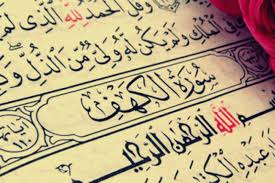 الْحَمْدُ لِلَّهِ الَّذِي لَمْ
وَلَمْ يَكُن لَّهُ وَلِيٌّ مِّنَ الذُّلِّ
سُورَةُ الْكَهْفِ
اللَّهِ الرَّحْمَٰنِ الرَّحِيمِ
عَبْدِهِ الْكِتَٰبَ